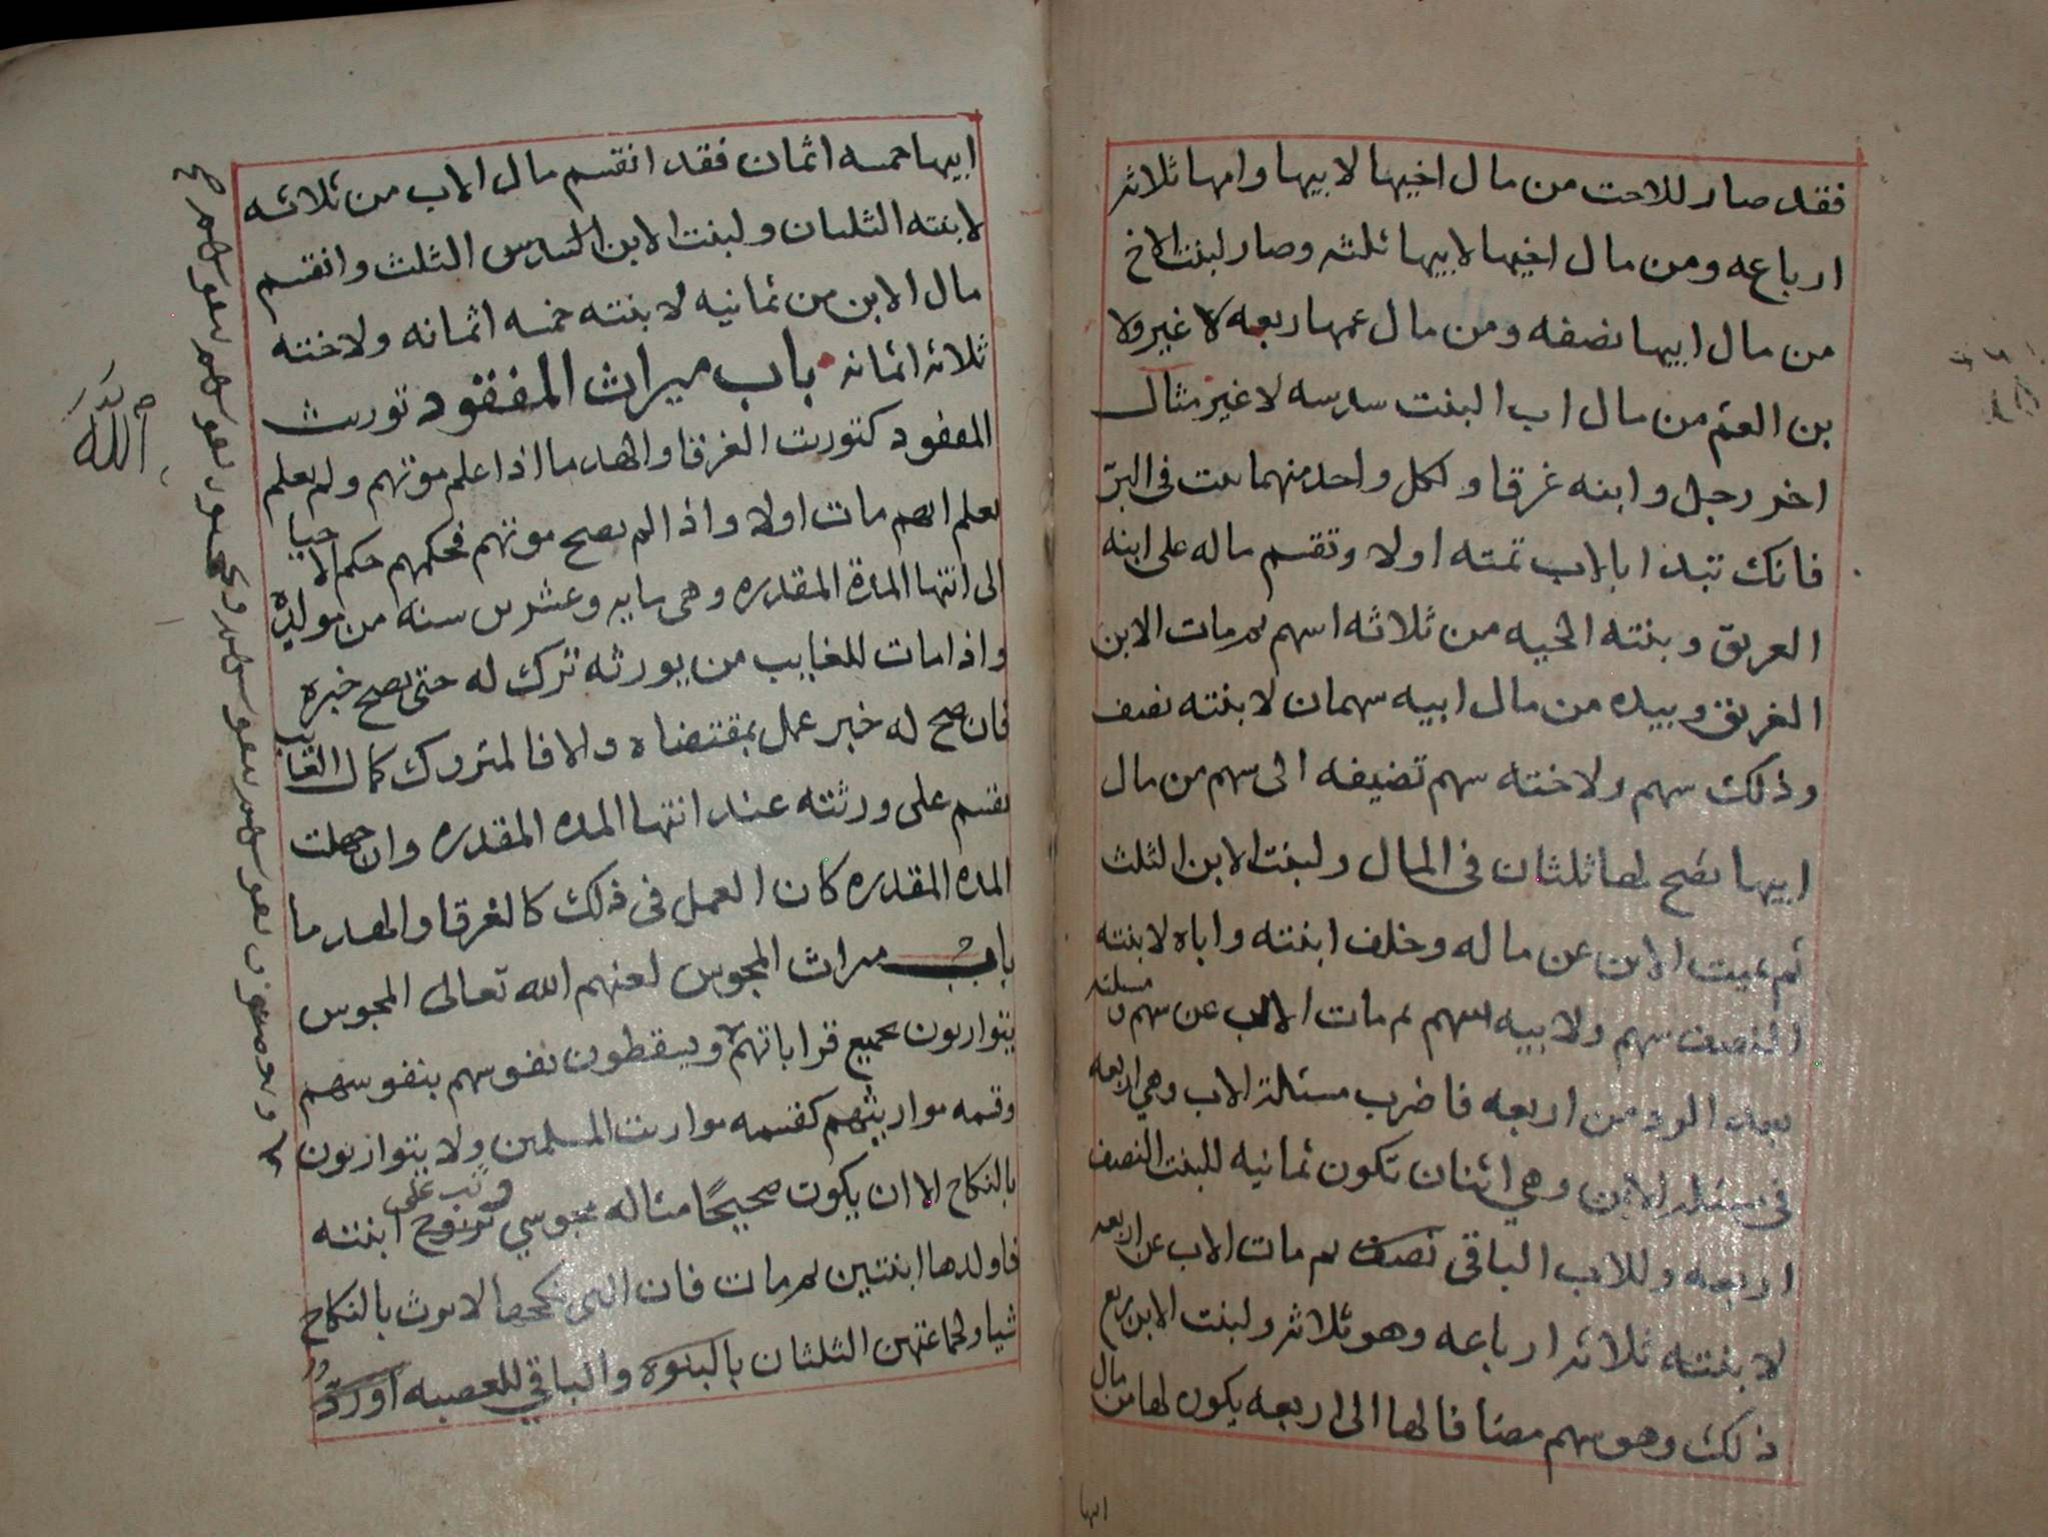 فقد صار للاخت من مال اخيها لابيها وامها ثلاثه
ارباعه ومن مال اخيها لابيها ثلثه وصار لبنت الاخ
من مال ابيها نصفه ومن مال عمها ربعه لا غير ولا
بن العم من مال اب البنت سدسه لا غير مثال
اخر رجل وابنه غرقا ولكل واحد منهما بنت في البر
فانك تبدا بالاب تمته اولا وتقسم ماله على ابنه
الغريق وبنته الحيه من ثلاثه اسهم ثم مات الابن
الغريق وبيده من مال ابيه سهمان لابنته نصف
وذلك سهم ولاخته سهم تضيفه الى سهم من مال
ابيها يصح لها ثلثان في المال ولبنت الابن الثلث
ثم تميت الابن عن ماله وخلف ابنته واباه لابنته
النصف سهم ولابيه سهم ثم مات الاب عن سهم ومسئلته
بعد الرد من اربعه فاضرب مسئلة الاب وهي اربعه
في مسئلة الابن وهي اثنان تكون ثمانيه للبنت النصف
اربعه وللاب الباقي نصف ثم مات الاب عن اربعه
لابنته ثلاثه ارباعه وهو ثلاثه ولبنت الابن ربع
ذلك وهو سهم مضافا لها الى اربعه يكون لها من مال
ابيها
ابيها خمسه اثمان فقد انقسم مال الاب من ثلاثه
لابنته الثلثان ولبنت الابن السدس الثلث وانقسم
مال الابن من ثمانيه لابنته خمسه اثمانه ولاخته
ثلاثه اثمانه باب ميراث المفقود توريث
المفقود كتوريث الغرقا والهدما اذا علم موتهم ولم يعلم
يعلم ايهم مات اولا واذا لم يصح موتهم فحكمهم حكم الاحيا
الى انتها المدة المقدره وهي مايه وعشرين سنه من مولده
واذا مات للغايب من يورثه ترك له حتى يصح خبره
فان صح له خبر عمل بمقتضاه والا فالمتروك كمال الغايب
يقسم على ورثته عند انتها المده المقدره وان جهلت
المده المقدره كان العمل في ذلك كالغرقا والهدما
باب ميراث المجوس لعنهم الله تعالى المجوس
يتوارثون بجميع قراباتهم ويسقطون نفوسهم بنفوسهم
وقسمه مواريثهم كقسمه مواريث المسلمين ولا يتوارثون
بالنكاح الا ان يكون صحيحًا مثاله مجوسي وثب على تزوج ابنته
فاولدها ابنتين ثم مات فان التي نكحها لا ترث بالنكاح
شيا ولجماعتهن الثلثان بالبنوة والباقي للعصبه او رد
الله